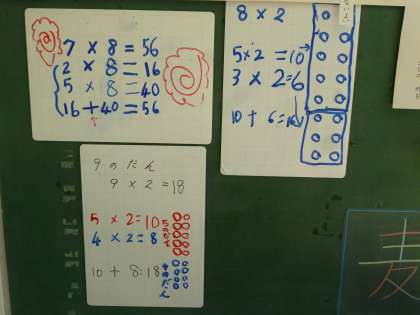 7 × 8 = 56
2 × 8 = 16
5 × 8 = 40
16 + 40 = 56
8 × 2
5 × 2 = 10
3 × 2 = 6
10 + 6 = 16
9のだん
9 × 2 = 18
5 × 2 = 10
4 × 2 = 8
10 + 8 = 18
麦